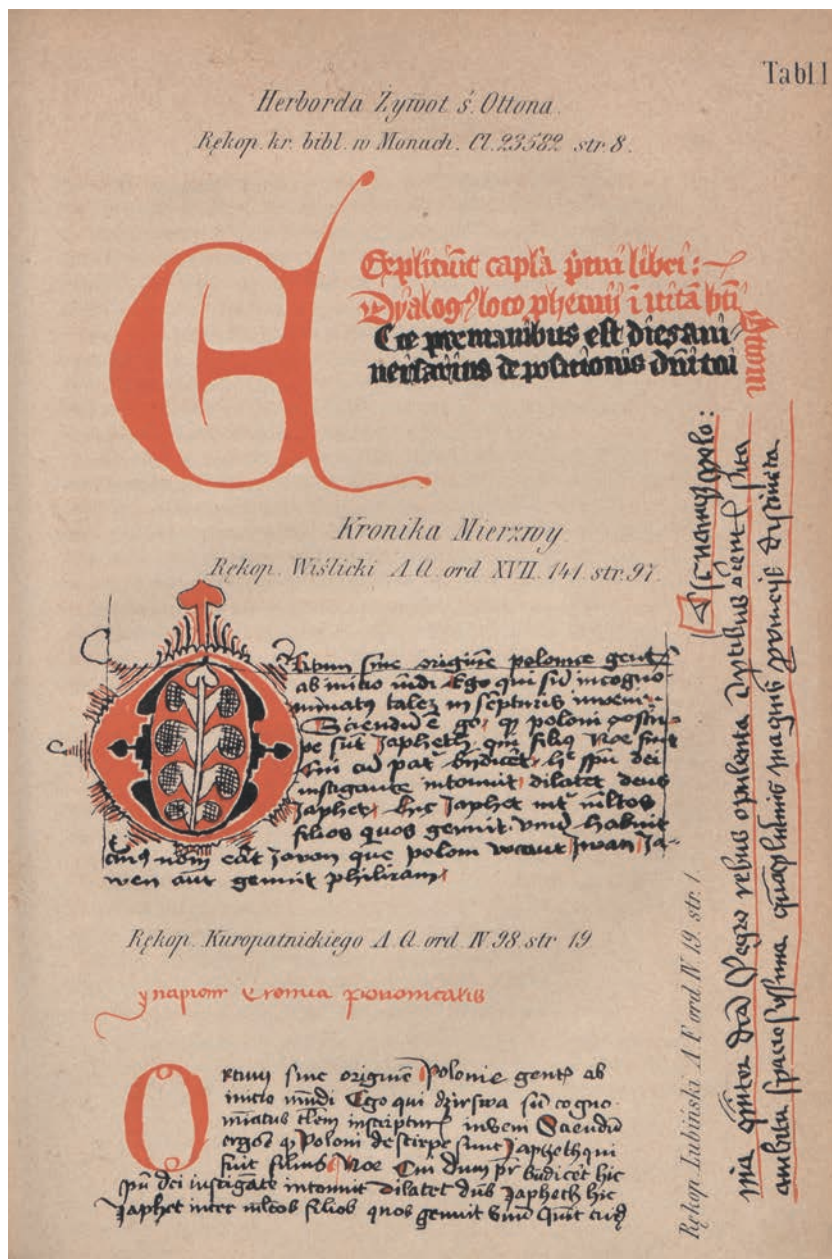 Tabl 1
Herborda Żywot ś. Ottona.
Rękop. kr. bibl. w Monach. Cl. 23582 str. 8.
Expliciūt capl'a p̄mi libri:
Dyalog loco phemij ī uitā bti
Ottonis
Cce pre manibus est dies ani
uersarius depositionis dn̄i tui
Kronika Mierzwy.
Rękop. Wiślicki A.Q. ord XVII. 141. str. 97.
Ortum siue originē polonice gent
ab inicio mūdi Ego qui sū incogno
minatꝯ talez in scripturis inueni
Sciendū ē go qꝫ poloni de stir
pe sūt Japheth qui filiꝯ Noe fuit
Cui cū pat bn̄dicet hc spū dei
instigante intonuit dilatet deus
Japhet hic Japhet int ml̄tos
filios quos genuit vnū habuit
cuiꝯ nom̄ erat Jauon quē poloni vocant Jwan Ja-
wen aut genuit philiram
Rękop. Kuropatnickiego A.Q. ord. IV 98. str 19
ynapiom Cronica
Ortum siue originē Polonie gentꝭ ab
inicio mūdi Ego qui dzirswa sū cogno
minatus inscripturꝭ inueni Sciendū
ergo ē qꝫ Poloni de stirpe sunt Japheth qui
fuit filius Noe Cui dum pr bn̄dicet hic
spū dei instigāte intonuit Dilatet dn̄s Japheth hic
Japhet inter ml̄tos filios quos genuit vnū
Rękop. Lubiński A.F. ord. IV 19. str. 1.
rebus opulenta
ambitu spaciosissima magnis